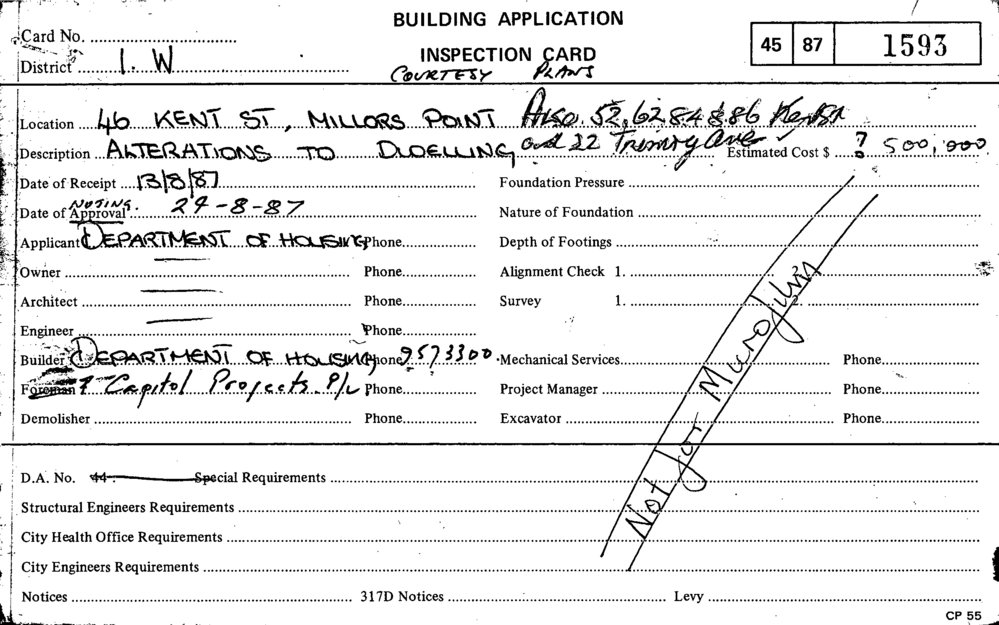 BUILDING APPLICATION
Card No.
INSPECTION CARD
45 87 1593
District I. W
COURTESY PLANS
Location 46 KENT ST, MILLORS POINT Also 52, 62 84 & 86 Kent St
Description ALTERATIONS TO DWELLING and 22 Trinity Ave Estimated Cost $ ? 500,000
Date of Receipt 13/8/87 Foundation Pressure
NOTING.
Date of Approval 24-8-87 Nature of Foundation
Applicant DEPARTMENT OF HOUSING Phone Depth of Footings
Owner Phone Alignment Check 1.
Architect Phone Survey 1. 2
Engineer Phone
Builder DEPARTMENT OF HOUSING Phone 9573300 Mechanical Services Phone
Foreman ? Capitol Projects P/L Phone Project Manager Phone
Demolisher Phone Excavator Phone
Not for Microfilm
D.A. No. 44 Special Requirements
Structural Engineers Requirements
City Health Office Requirements
City Engineers Requirements
Notices 317D Notices Levy
CP 55